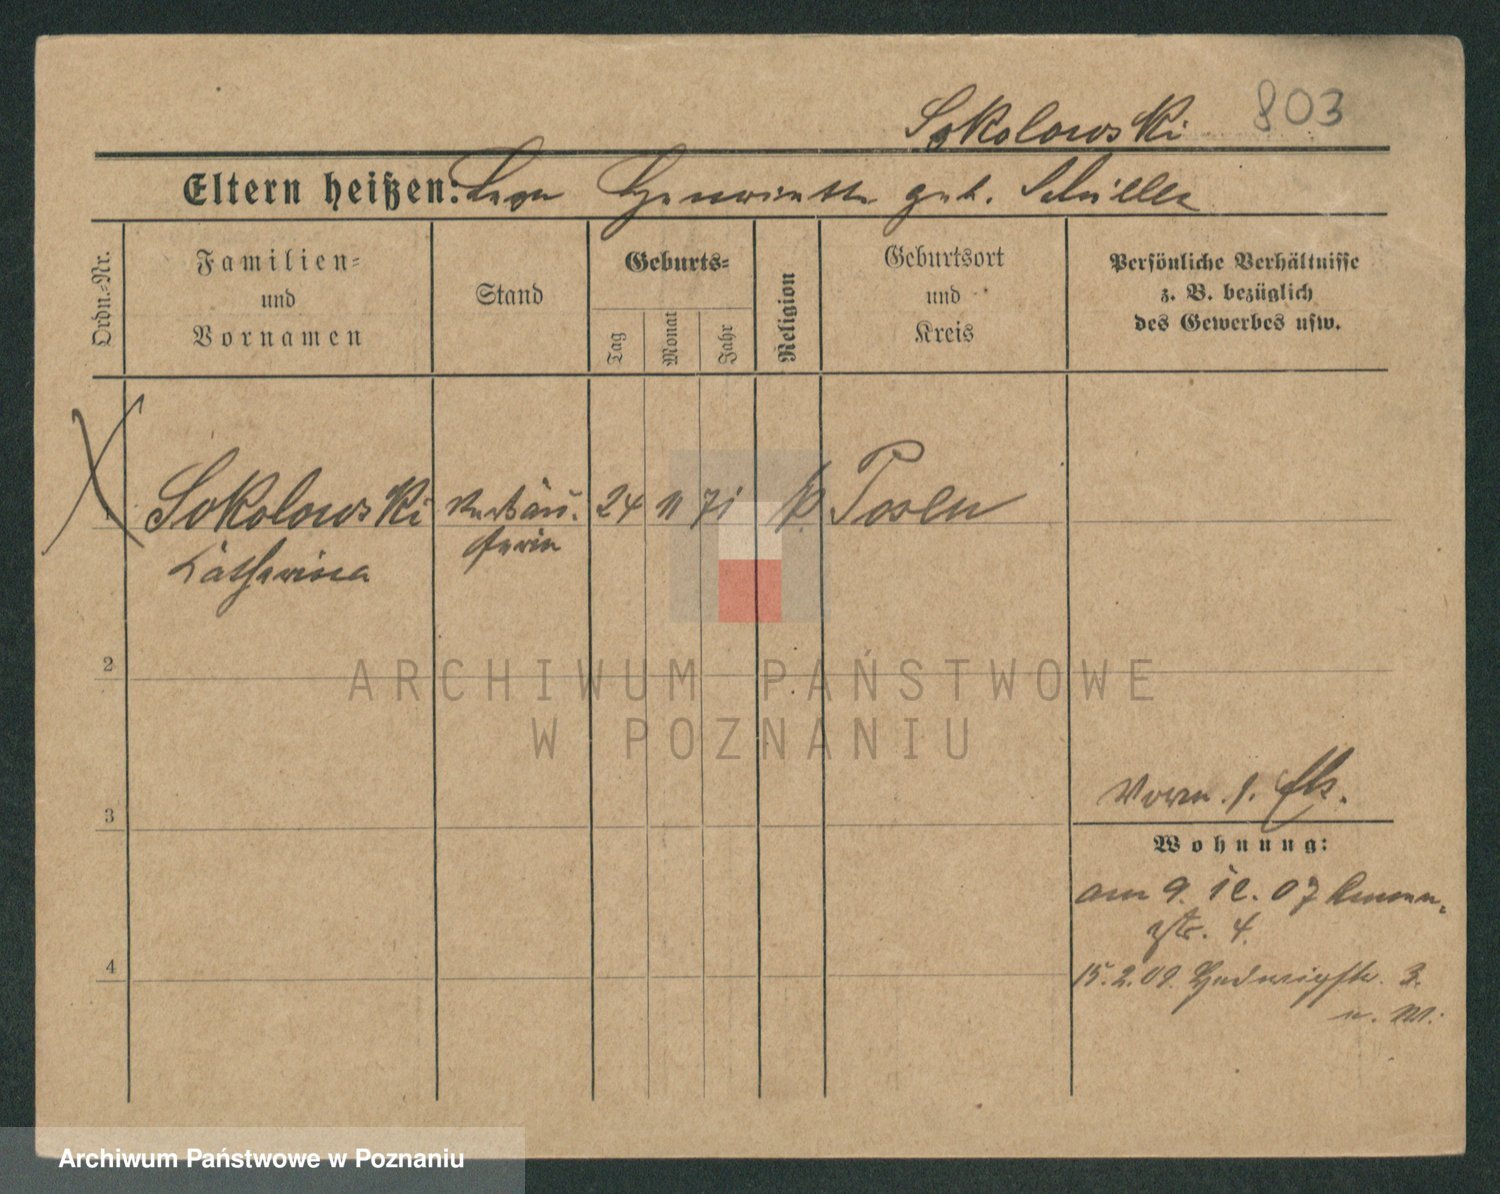 Sokolowski 803
Eltern heißen: Leon Henriette geb. Schiller
Ordn.-Nr.
Familien-
und
Vornamen
Stand
Geburts-
Tag
Monat
Jahr
Religion
Geburtsort
und
Kreis
Persönliche Verhältnisse
z. B. bezüglich
des Gewerbes usw.
1 Sokolowski Verkäu- 24 11 71 k. Posen
Katharina ferin
2
ARCHIWUM PAŃSTWOWE
W POZNANIU
3
Wohnung:
am 9. 12. 07
str. 4.
4
15. 2. 09. Hedwigstr. 3.
Archiwum Państwowe w Poznaniu